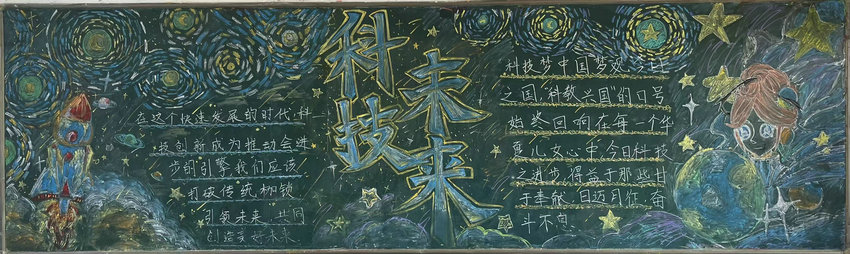 科技
未来
在这个快速发展的时代,科
技创新成为推动会进
步的引擎我们应该
打破传统枷锁
引领未来 共同
创造美好未来
科技梦中国梦观今日
之国,科教兴国的口号
始终回响在每一个华
夏儿女心中,今日科技
之进步,得益于那些甘
于奉献,日迈月征,奋
斗不息